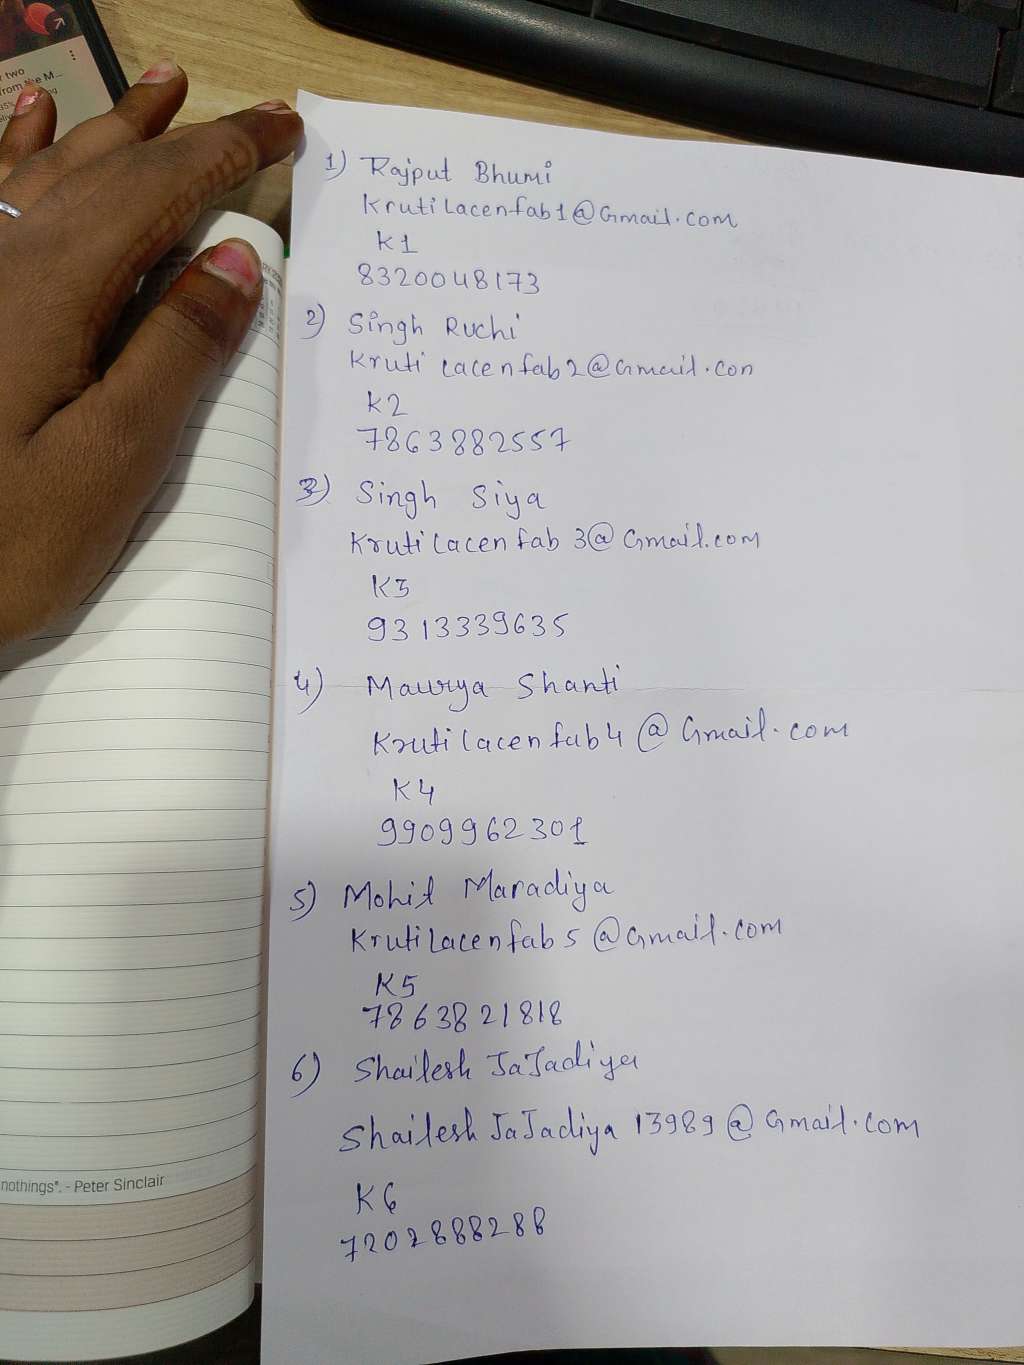 two
from the M...
1) Rajput Bhumi
Krutilacenfab1@Gmail.com
K1
8320048173
2) Singh Ruchi
Kruti lacenfab2@Gmail.con
K2
7863882557
3) Singh Siya
Krutilacenfab 3@Gmail.com
K3
9313339635
4) Maurya Shanti
Krutilacenfab4@Gmail.com
K4
9909962301
5) Mohit Maradiya
Krutilacenfab5@Gmail.com
K5
7863821818
6) Shailesh JaJadiya
Shailesh JaJadiya 13989@Gmail.com
K6
7202888288
nothings". - Peter Sinclair